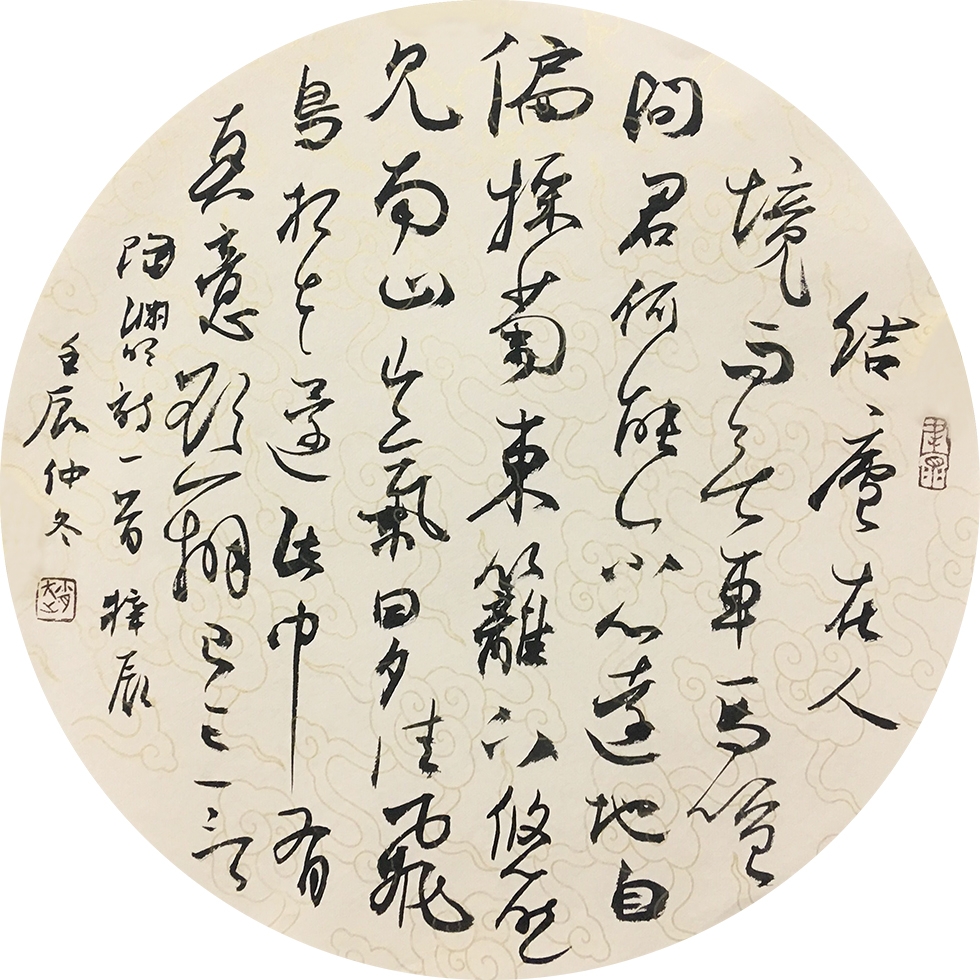 结廬在人
境而无車马喧
问君何能尔心遠地自
偏採菊東籬下悠然
见南山山氣日夕佳飛
鳥相与還此中有
真意欲辨已忘言
陶渊明诗一首
壬辰仲冬